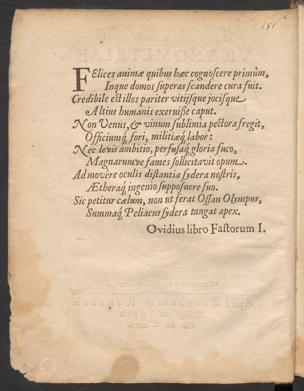 151
FElices animæ quibus hæc cognoscere primùm,
Inque domos superas scandere cura fuit.
Credibile est illos pariter vitijsque jocisque
Altius humanis exeruisse caput.
Non Venus, & vinum sublimia pectora fregit,
Officiumq; fori, militiæq; labor:
Nec levis ambitio, perfusaq; gloria fuco,
Magnarumve fames sollicitavit opum.
Admovere oculis distantia sydera nostris,
Ætheraq; ingenio supposuere suo.
Sic petitur cælum, non ut ferat Ossan Olympus,
Summaq; Peliacus sydera tangat apex.
Ovidius libro Fastorum I.